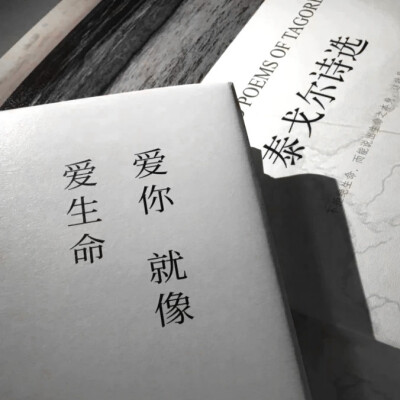 爱你 就像
爱生命
POEMS OF TAGOR
泰戈尔诗选